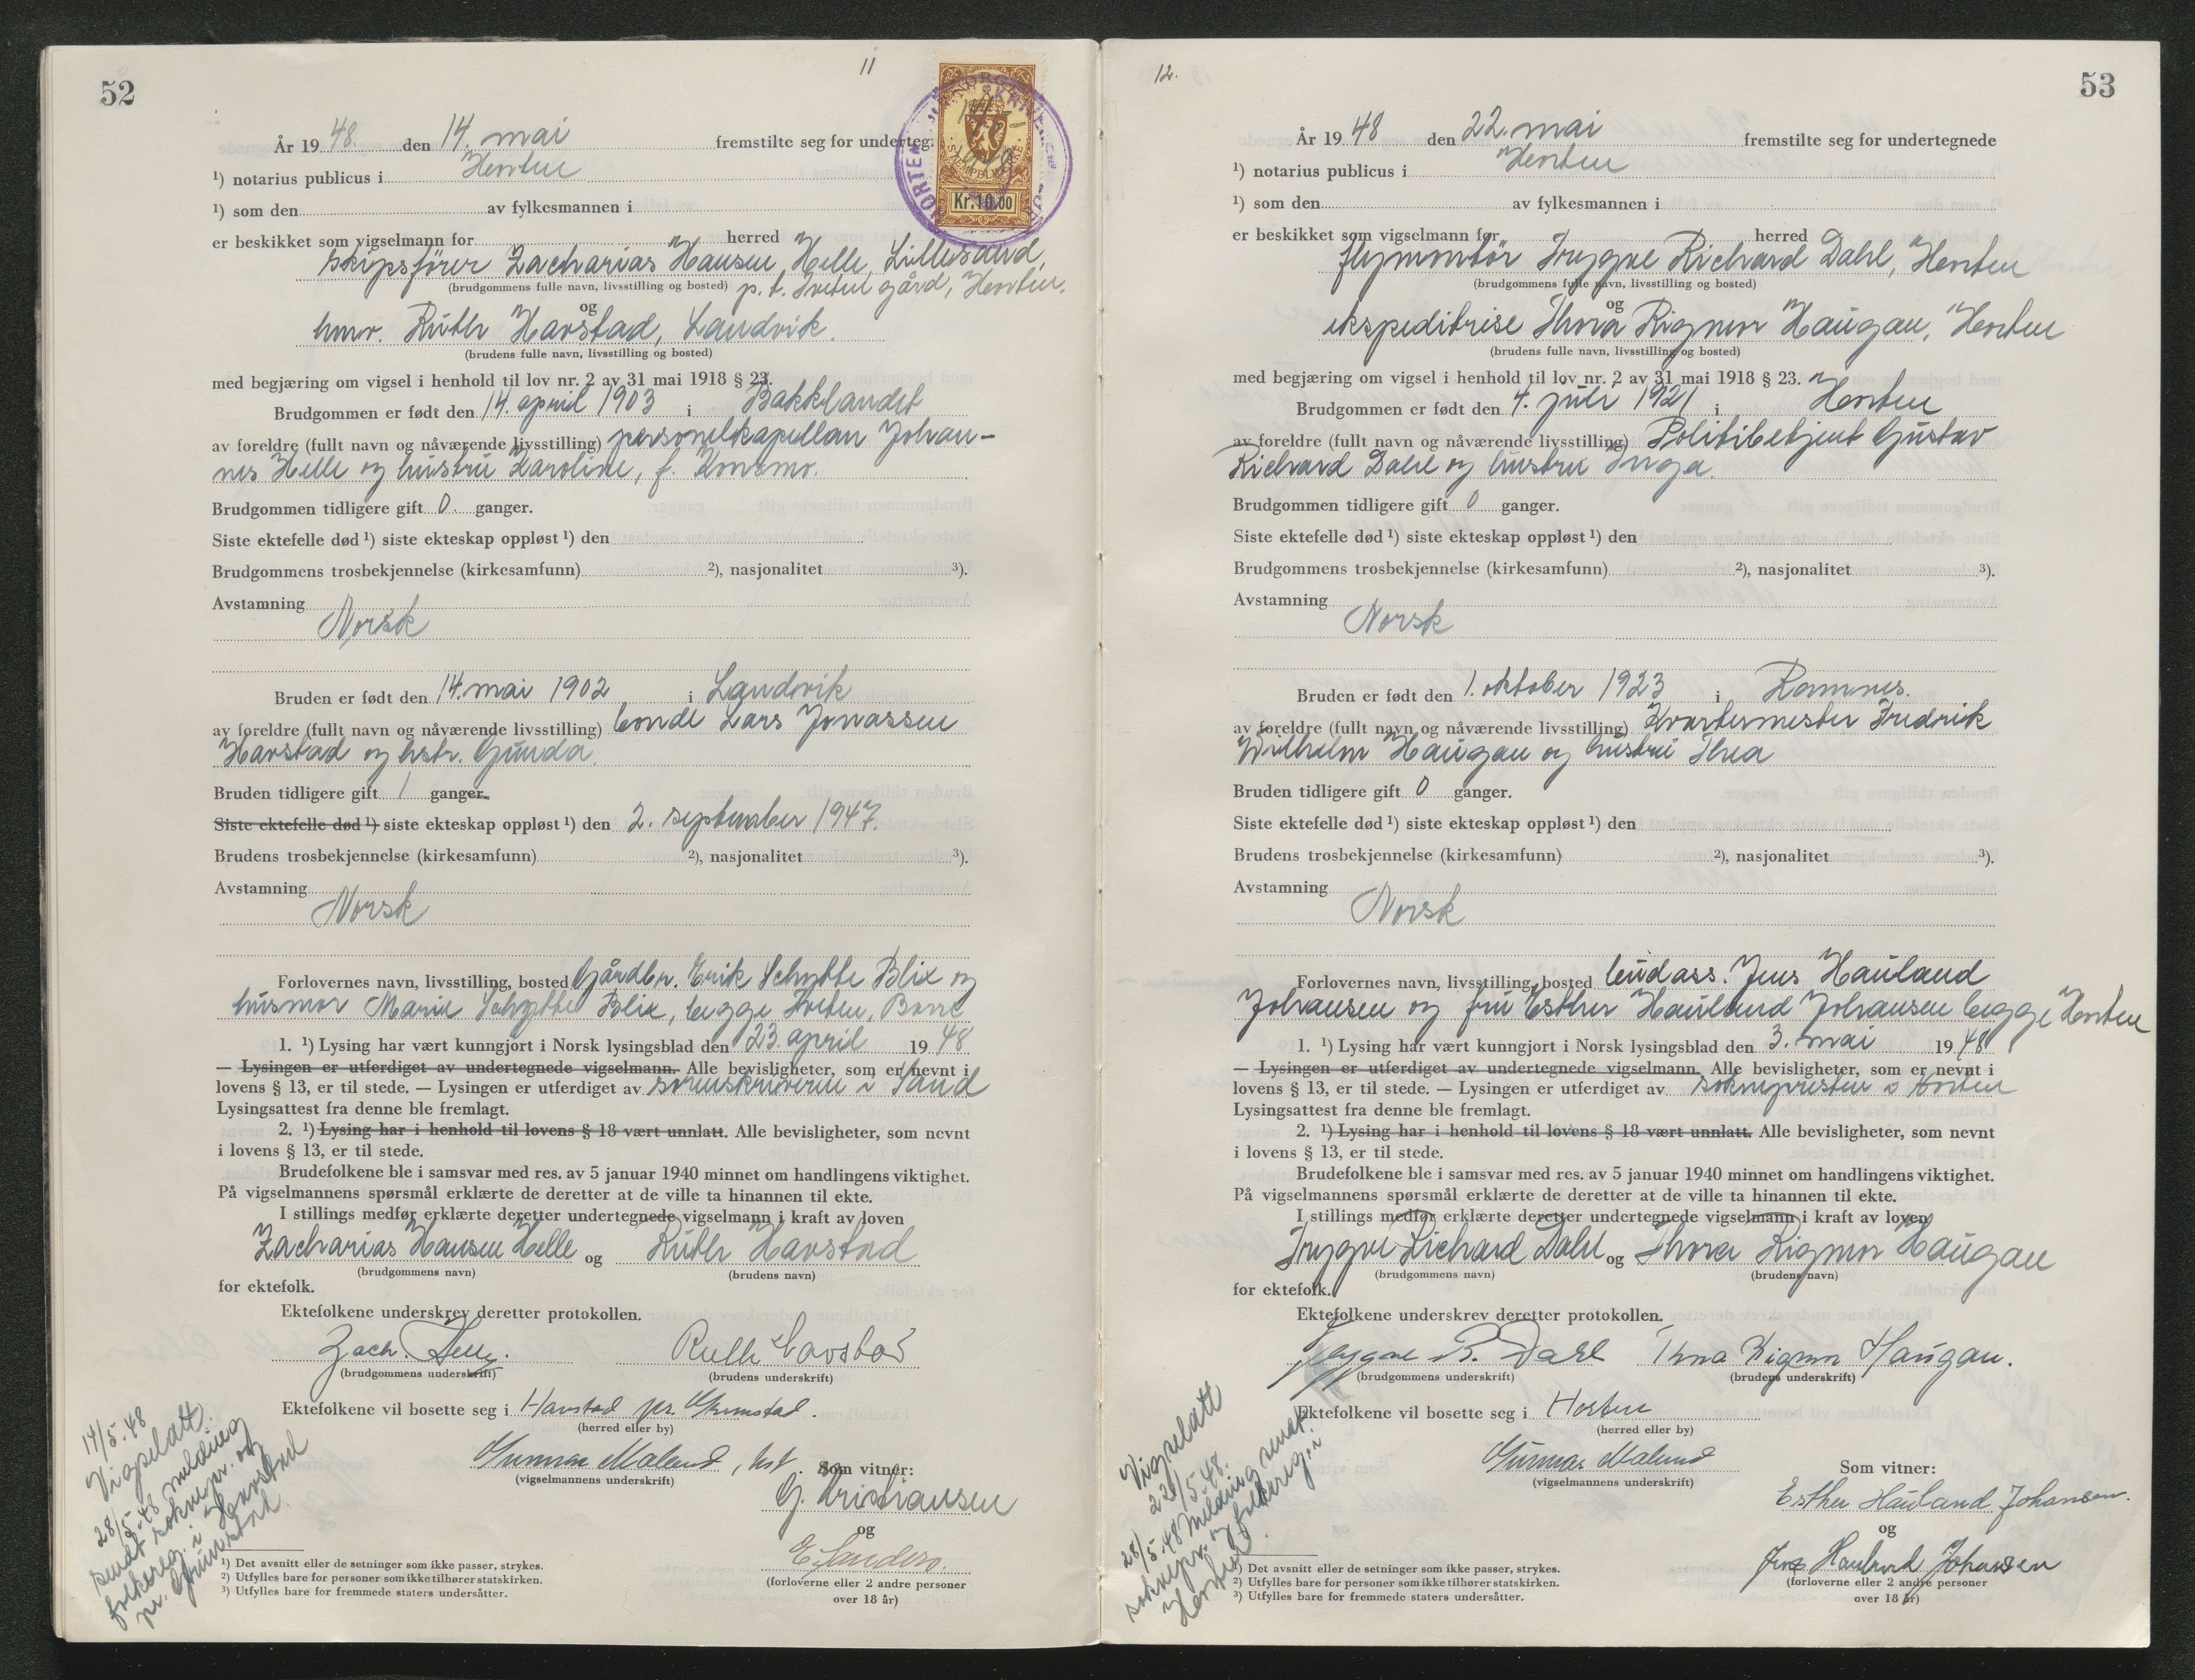 52
11
År 19 48. den 14. mai fremstilte seg for underteg.
¹) notarius publicus i Horten
¹) som den av fylkesmannen i
er beskikket som vigselmann for herred
skipsfører Zacharias Hansen Helle, Lillesand,
(brudgommens fulle navn, livsstilling og bosted) p. t. Tveten gård, Horten.
og
hmv. Ruth Havstad, Landvik.
(brudens fulle navn, livsstilling og bosted)
med begjæring om vigsel i henhold til lov nr. 2 av 31 mai 1918 § 23.
Brudgommen er født den 14. april 1903 i Bakklandet
av foreldre (fullt navn og nåværende livsstilling) personelkapellan Johan-
nes Helle og hustru Karoline, f. Konsmo.
Brudgommen tidligere gift 0. ganger.
Siste ektefelle død ¹) siste ekteskap oppløst ¹) den
Brudgommens trosbekjennelse (kirkesamfunn) ²), nasjonalitet ³).
Avstamning
Norsk
Bruden er født den 14. mai 1902 i Landvik
av foreldre (fullt navn og nåværende livsstilling) bonde Lars Jonassen
Havstad og hstr. Gunda.
Bruden tidligere gift 1 ganger.
Siste ektefelle død ¹) siste ekteskap oppløst ¹) den 2. september 1947.
Brudens trosbekjennelse (kirkesamfunn) ²), nasjonalitet ³).
Avstamning
Norsk
Forlovernes navn, livsstilling, bosted Gårdbr. Erik Schytte Blix og
husmor Marie Schytte Blix, begge Tveten, Borre
1. ¹) Lysing har vært kunngjort i Norsk lysingsblad den 23. april 19 48
— Lysingen er utferdiget av undertegnede vigselmann. Alle bevisligheter, som er nevnt i
lovens § 13, er til stede. — Lysingen er utferdiget av sorenskriveren i Sand
Lysingsattest fra denne ble fremlagt.
2. ¹) Lysing har i henhold til lovens § 18 vært unnlatt. Alle bevisligheter, som nevnt
i lovens § 13, er til stede.
Brudefolkene ble i samsvar med res. av 5 januar 1940 minnet om handlingens viktighet.
På vigselmannens spørsmål erklærte de deretter at de ville ta hinannen til ekte.
I stillings medfør erklærte deretter undertegnede vigselmann i kraft av loven
Zacharias Hansen Helle og Ruth Havstad
(brudgommens navn) (brudens navn)
for ektefolk.
Ektefolkene underskrev deretter protokollen.
Zach. Helle. Ruth Havstad
(brudgommens underskrift) (brudens underskrift)
Ektefolkene vil bosette seg i Havstad pr. Grimstad.
(herred eller by)
Gunnar Malund, Som vitner:
(vigselmannens underskrift)
G. Kristiansen
og
E. Sanders.
(forloverne eller 2 andre personer
over 18 år)
14/5.48
Vigselatt.
28/5.48 melding
sendt soknepr. og
folkereg. i Havstad
pr. Grimstad.
¹) Det avsnitt eller de setninger som ikke passer, strykes.
²) Utfylles bare for personer som ikke tilhører statskirken.
³) Utfylles bare for fremmede staters undersåtter.
NORGE
Kr. 10.00
HORTEN
12.
53
År 19 48 den 22. mai fremstilte seg for undertegnede
¹) notarius publicus i Horten
¹) som den av fylkesmannen i
er beskikket som vigselmann for herred
flymontør Trygve Richard Dahl, Horten
(brudgommens fulle navn, livsstilling og bosted)
og
ekspeditrise Thora Rigmor Haugan, Horten
(brudens fulle navn, livsstilling og bosted)
med begjæring om vigsel i henhold til lov nr. 2 av 31 mai 1918 § 23.
Brudgommen er født den 4. juli 1921 i Horten
av foreldre (fullt navn og nåværende livsstilling) Politibetjent Gustav
Richard Dahl og hustru Inga.
Brudgommen tidligere gift 0 ganger.
Siste ektefelle død ¹) siste ekteskap oppløst ¹) den
Brudgommens trosbekjennelse (kirkesamfunn) ²), nasjonalitet ³).
Avstamning
Norsk
Bruden er født den 1. oktober 1923 i Ramnes.
av foreldre (fullt navn og nåværende livsstilling) Kvartermester Fredrik
Wilhelm Haugan og hustru Thea
Bruden tidligere gift 0 ganger.
Siste ektefelle død ¹) siste ekteskap oppløst ¹) den
Brudens trosbekjennelse (kirkesamfunn) ²), nasjonalitet ³).
Avstamning
Norsk
Forlovernes navn, livsstilling, bosted budass. Jens Hauland
Johansen og fru Esther Hauland Johansen begge Horten
1. ¹) Lysing har vært kunngjort i Norsk lysingsblad den 3. mai 19 48
— Lysingen er utferdiget av undertegnede vigselmann. Alle bevisligheter, som er nevnt i
lovens § 13, er til stede. — Lysingen er utferdiget av soknepresten i Horten
Lysingsattest fra denne ble fremlagt.
2. ¹) Lysing har i henhold til lovens § 18 vært unnlatt. Alle bevisligheter, som nevnt
i lovens § 13, er til stede.
Brudefolkene ble i samsvar med res. av 5 januar 1940 minnet om handlingens viktighet.
På vigselmannens spørsmål erklærte de deretter at de ville ta hinannen til ekte.
I stillings medfør erklærte deretter undertegnede vigselmann i kraft av loven
Trygve Richard Dahl og Thora Rigmor Haugan
(brudgommens navn) (brudens navn)
for ektefolk.
Ektefolkene underskrev deretter protokollen.
Trygve R. Dahl Thora Rigmor Haugan.
(brudgommens underskrift) (brudens underskrift)
Ektefolkene vil bosette seg i Horten
(herred eller by)
Gunnar Malund
(vigselmannens underskrift)
Som vitner:
Esther Hauland Johansen.
og
Jens Hauland Johansen
(forloverne eller 2 andre personer
over 18 år)
Vigselatt
22/5.48.
28/5.48 melding sendt
soknepr. og folkereg. i
Horten.
¹) Det avsnitt eller de setninger som ikke passer, strykes.
²) Utfylles bare for personer som ikke tilhører statskirken.
³) Utfylles bare for fremmede staters undersåtter.